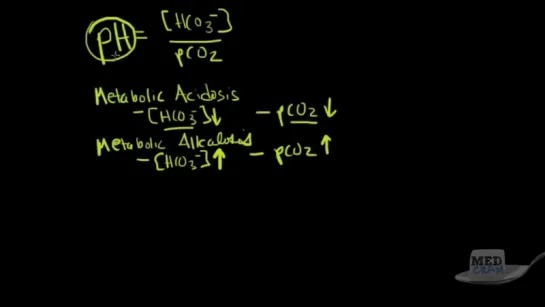 pH = [HCO3⁻]
pCO2
Metabolic Acidosis
- [HCO3⁻]↓ - pCO2↓
Metabolic Alkalosis
- [HCO3⁻]↑ - pCO2↑
MED
CRAM